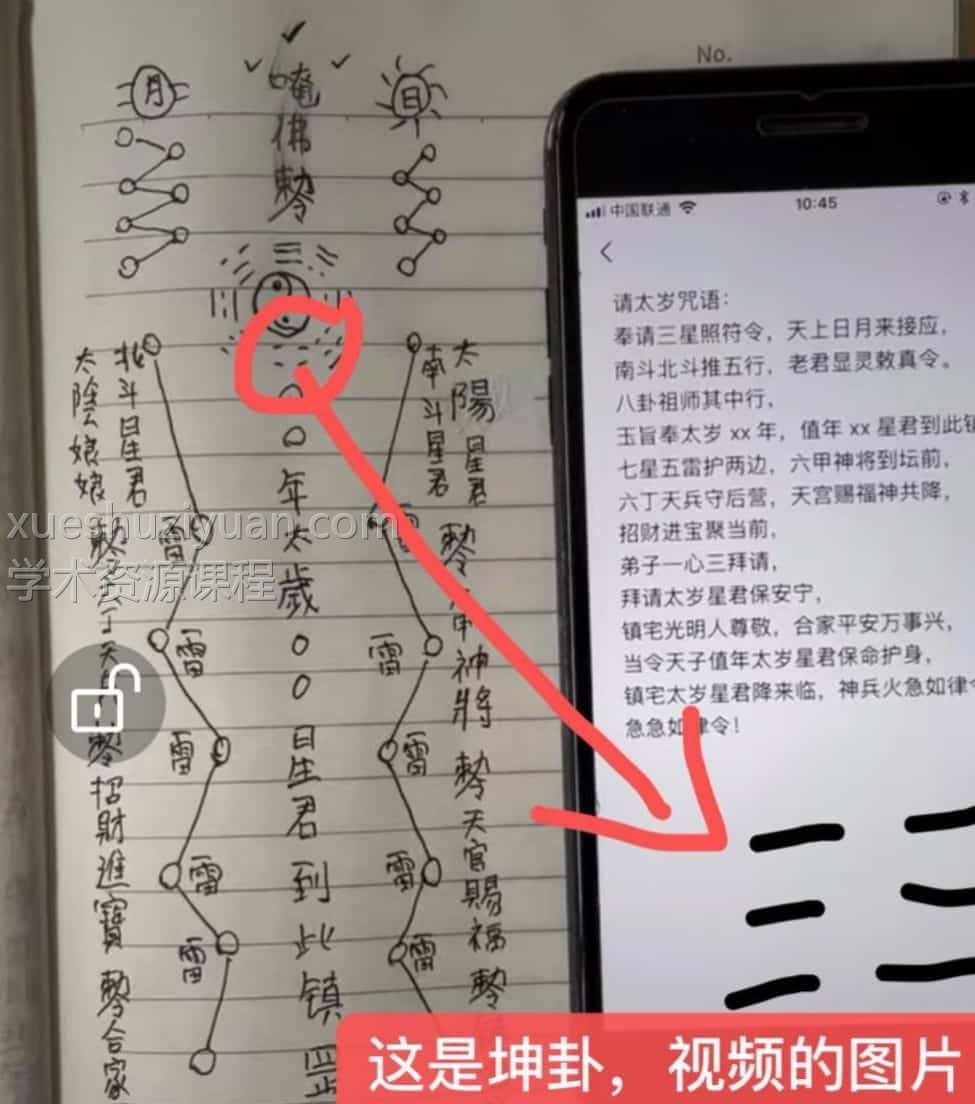 No.
月
唵佛敕
日
北斗星君
太陰娘娘
南斗星君
太陽星君
〇〇年太歲〇〇星君到此镇
雷
雷
雷
雷
雷
雷
雷
雷
招財進寶敕合家
神將敕天官賜福敕
中国联通
10:45
请太岁咒语：
奉请三星照符令，天上日月来接应，
南斗北斗推五行，老君显灵敕真令。
八卦祖师其中行，
玉旨奉太岁 xx 年，值年 xx 星君到此镇
七星五雷护两边，六甲神将到坛前，
六丁天兵守后营，天宫赐福神共降，
招财进宝聚当前，
弟子一心三拜请，
拜请太岁星君保安宁，
镇宅光明人尊敬，合家平安万事兴，
当令天子值年太岁星君保命护身，
镇宅太岁星君降来临，神兵火急如律令
急急如律令！
xueshuziyuan.com
学术资源课程
这是坤卦，视频的图片